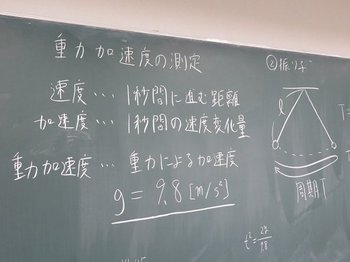 重力加速度の測定
速度… 1秒間に進む距離
加速度… 1秒間の速度変化量
重力加速度… 重力による加速度
g = 9.8 [m/s²]
②振り子
l
周期T
T=